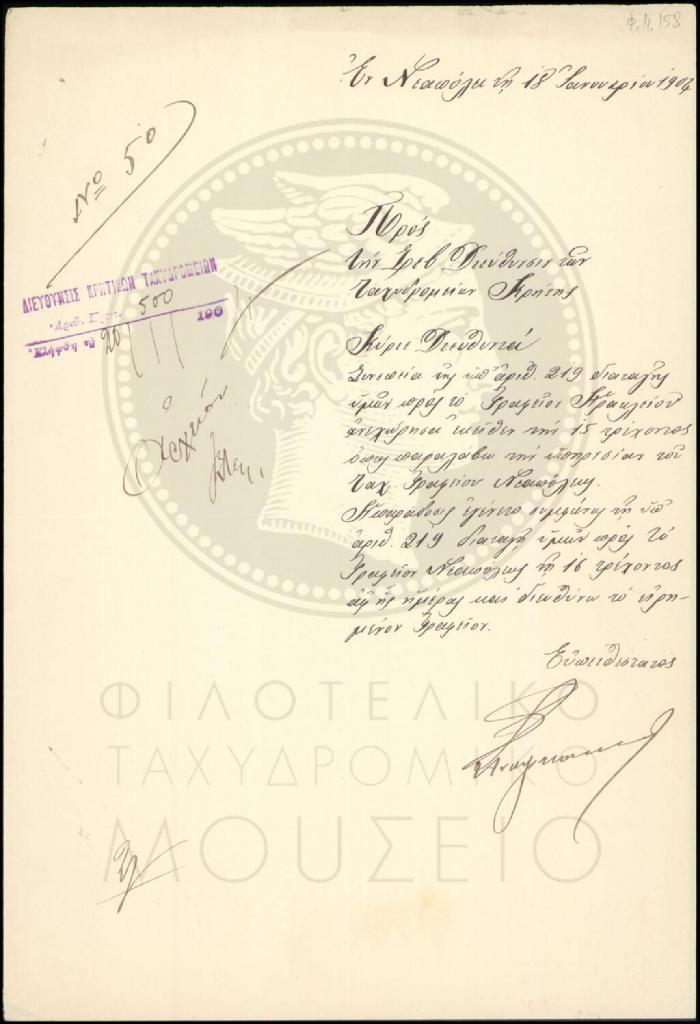 Φ.11.158
Ἐν Νεαπόλει τῇ 18 Ἰανουαρίου 1904
Νο 50
Πρὸς
τὴν Σεβ Διεύθυνσιν τῶν
Ταχυδρομείων Κρήτης
ΔΙΕΥΘΥΝΣΙΣ ΚΡΗΤΙΚΩΝ ΤΑΧΥΔΡΟΜΕΙΩΝ
Ἀριθ. Πρωτ. 500
Ἐλήφθη τῇ 20/1/ 190
Κύριε Διευθυντά
Συνεπείᾳ τῆς ὑπ' ἀριθ. 219 διαταγῆς
ὑμῶν πρὸς τὸ Γραφεῖον Ἡρακλείου
ἀνεχώρησα ἐκεῖθεν τὴν 15 τρέχοντος
ὅπως παραλάβω τὴν ὑπηρεσίαν τοῦ
Ταχ. Γραφείου Νεαπόλεως.
Ἡ παράδοσις ἐγένετο συμφώνως τῇ ὑπ
ἀριθ. 219 διαταγῇ ὑμῶν πρὸς τὸ
Γραφεῖον Νεαπόλεως τῇ 16 τρέχοντος
ἀφ' ἧς ἡμέρας καὶ διευθύνω τὸ εἰρη-
μένον Γραφεῖον.
Εὐπειθέστατος
ΦΙΛΟΤΕΛΙΚΟ
ΤΑΧΥΔΡΟΜΙΚΟ
ΜΟΥΣΕΙΟ